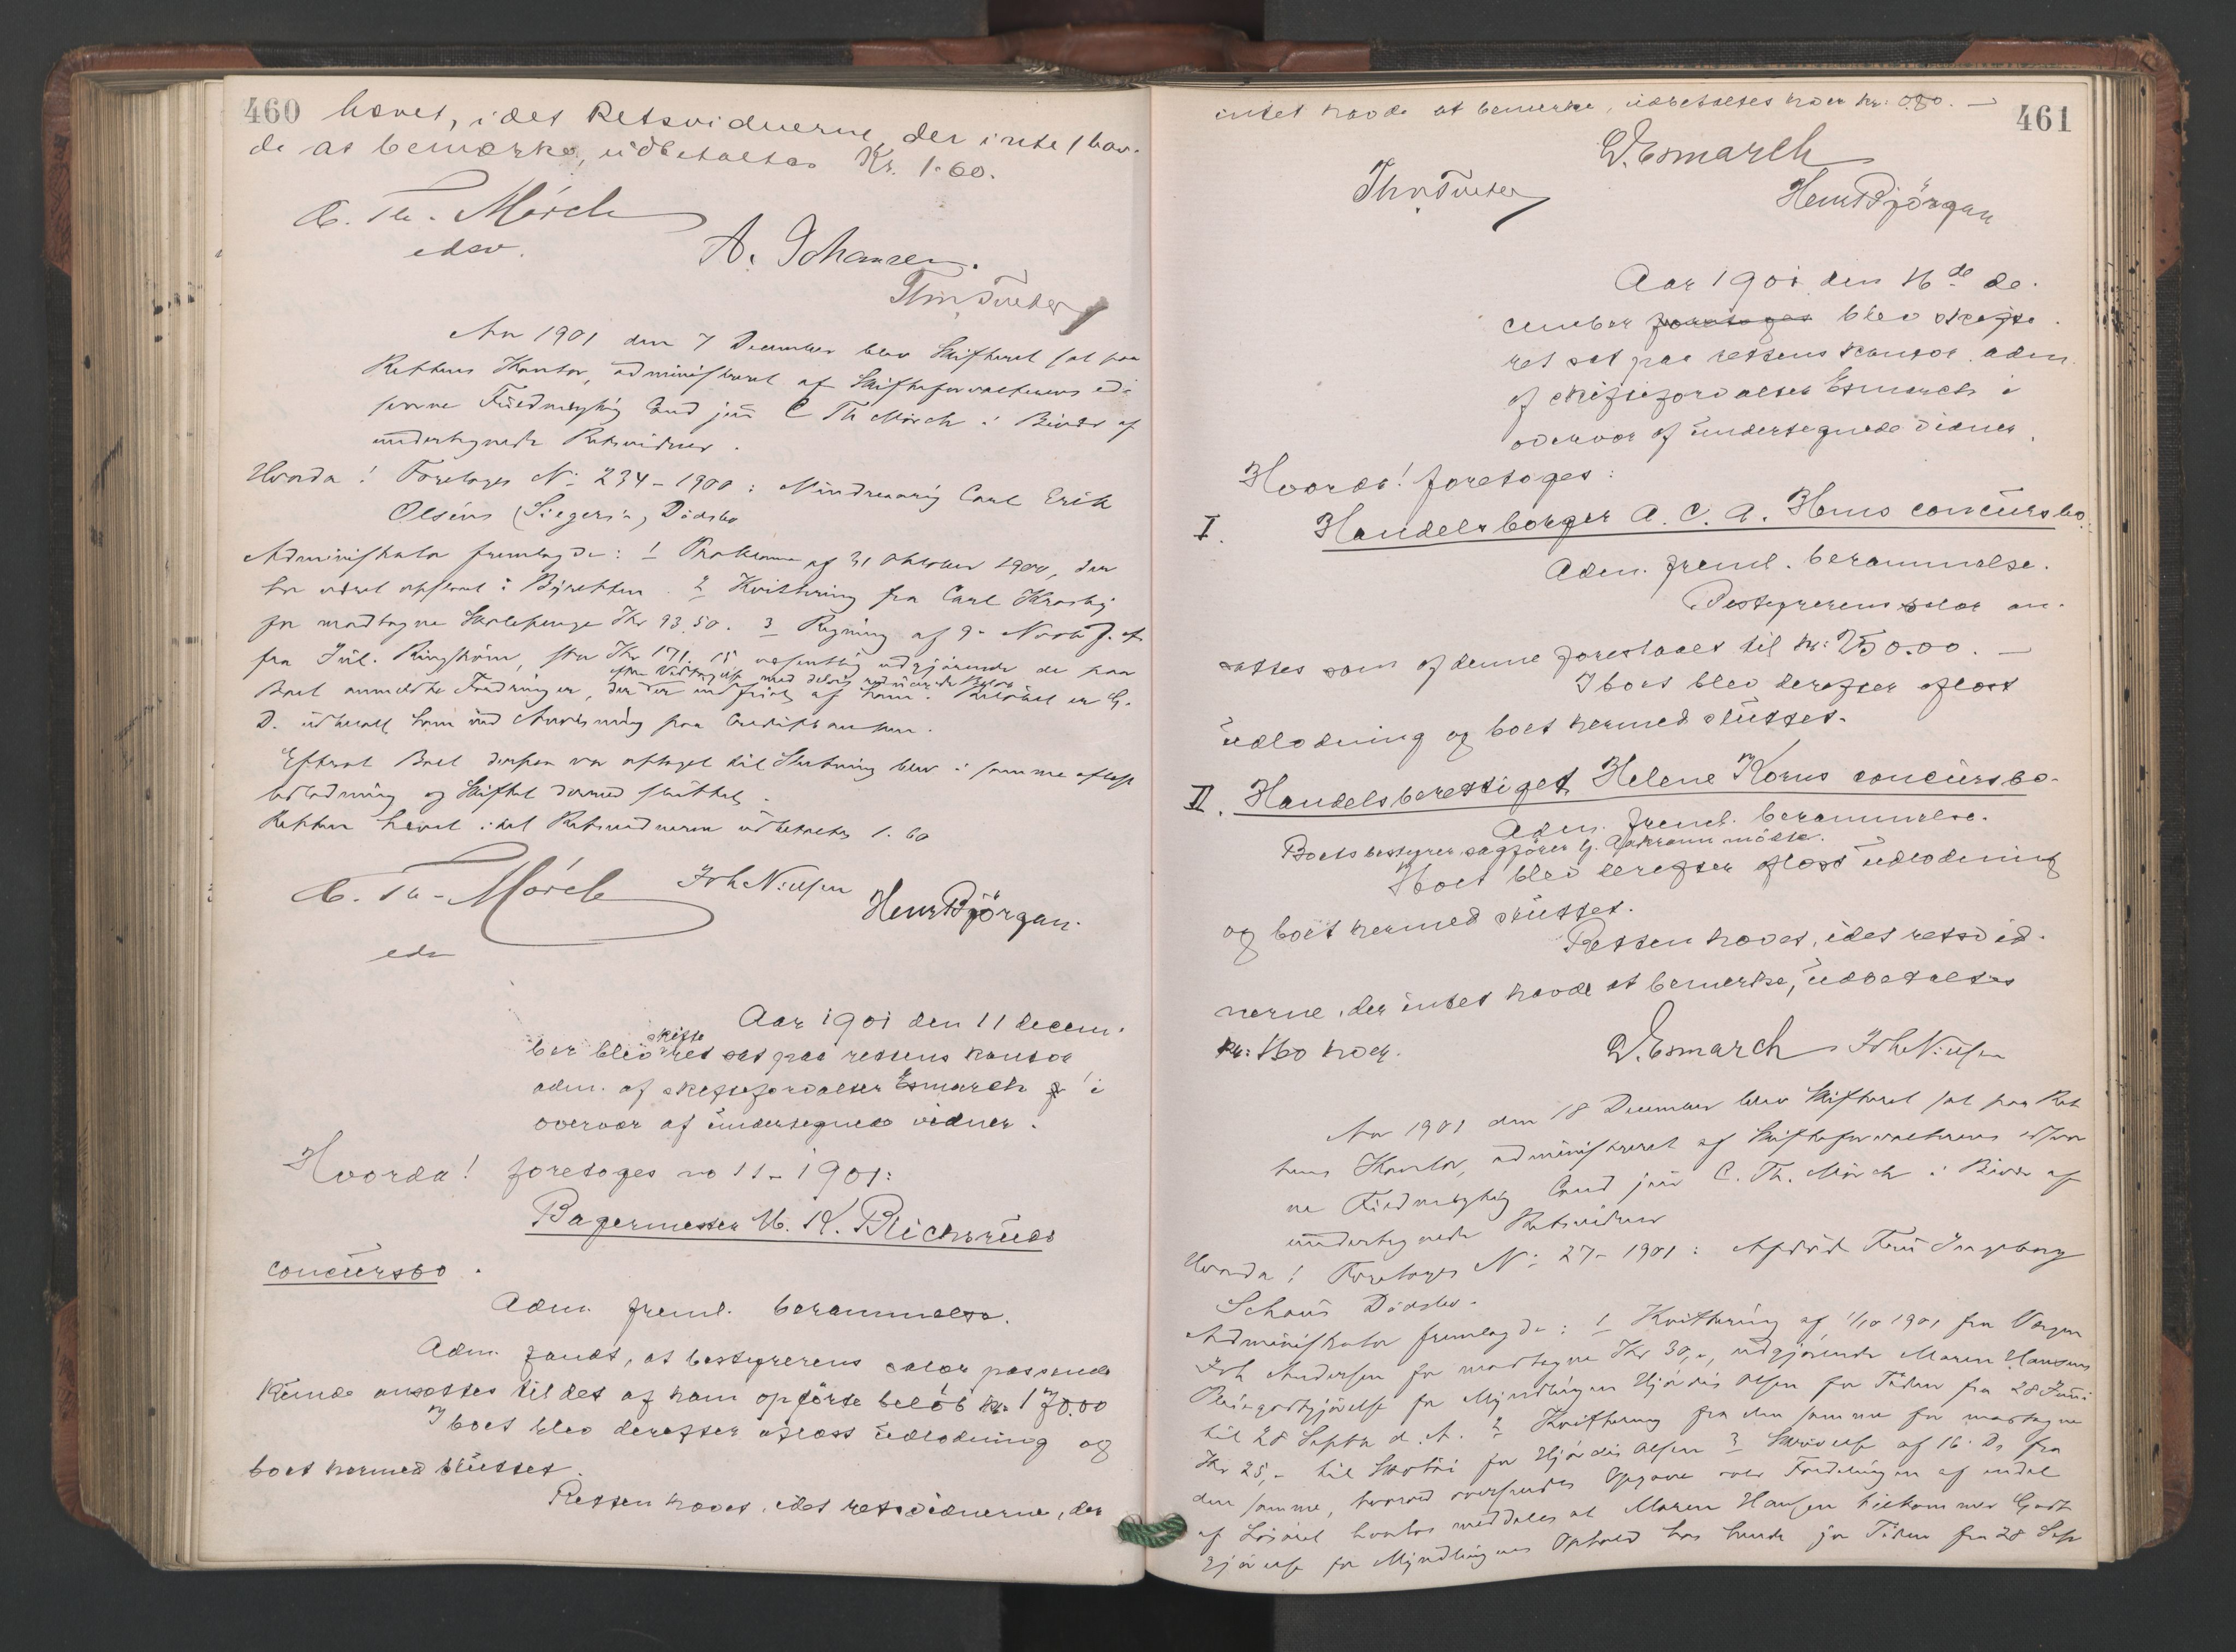 460
hævet, idet Retsvidnerne, der intet hav-
de at bemærke, udbetaltes Kr. 1.60.
C. Th. Mörch
edsv.
A. Johansen.
Aar 1901 den 7 December blev Skifteret sat paa
Rettens Kontor, administreret af Skifteforvalterens ed-
svorne Fuldmægtig Cand jur C Th Mörch i Bivær af
undertegnede Retsvidner.
Hvorda! Foretoges No 234-1900: Mindreaarig Carl Erik
Olsens (Siegers) Dödsbo
Administrator fremlagde: 1 Proklama af 31 Oktober 1900, der
har været opslaaet i Byretten. 2 Kvittering fra Carl Krosby
for modtagne Skolepenge Kr 93.50. 3 Regning af 9-
fra Jul. Ringström, stor Kr 171,15 udgjørende de paa
Boet anmeldte Fordringer, der er indfriet af ham. Beløbet er G.
D. udbetalt ham ved Anvisning paa
Efterat Boet derpaa var optaget til Slutning blev i samme oplæst
Udlodning og Skiftet dermed sluttet.
Retten hævet idet Retsvidnerne udbetaltes 1.60
C. Th. Mörch
Joh Nielsen
Henr Björgan.
eds
Aar 1901 den 11 decem-
skifte
ber blev ret sat paa rettens kontor
adm. af skifteforvalter Esmarch i
overvær af undertegnede vidner.
Hvorda! foretoges no 11-1901:
Bagermester M. K. Blichruds
concursbo.
Adm. freml. berammelse.
Adm. fandt, at bestyrerens salær passende
kunde ansættes til det af ham opförte belöb kr. 170.00
I boet blev derefter oplæst udlodning og
boet hermed sluttet.
Retten hævet, idet retsvidnerne, der
461
intet havde at bemerke, udbetaltes hver kr: 0.80. —
Esmarch
Henr Björgan
Aar 1901 den 16de de-
cember foretoges blev skifte-
ret sat paa rettens kontor adm.
af skifteforvalter Esmarch i
overvær af undertegnede vidner.
Hvorda! foretoges:
I. Handelsborger A. C. A. Hems concursbo.
Adm. freml. berammelse.
Bestyrerens salær an-
sattes som af denne foreslaaet til kr: 250.00. —
I boet blev derefter oplæst
udlodning og boet hermed sluttet.
II. Handelsberettiget Helene Korns concursbo-
Adm. freml. berammelse.
Boets bestyrer sagförer mödte.
I boet blev derefter oplæst udlodning
og boet hermed sluttet.
Retten hævet, idet retsvid-
nerne, der intet havde at bemerke, udbetaltes
kr: 1.60 hver.
Esmarch Joh Nielsen
Aar 1901 den 18 December blev Skifteret sat paa Ret
tens Kontor, administreret af Skifteforvalterens edsvor
ne Fuldmægtig Cand jur C. Th. Mörch i Bivær af
undertegnede Retsvidner
Hvorda! Foretoges No 27-1901: Afdöd Fru Ingeborg
Schous Dödsbo.
Administrator fremlagde: 1 Kvittering af 1/10 1901 fra Værgen
Joh Andersen for modtagne Kr 30,-, udgjørende Maren Hansens
Pleiegodtgjörelse for Myndlingen Hjördis Olsen for Tiden fra 28 Juni
til 28 Septbr d. A. 2 Kvittering fra den samme for modtagne
Kr 25,- til for Hjördis Olsen 3 Skrivelse af 16 Ds fra
den samme, hvorved oversendes Opgave over Fordelingen af endel
af Lösöret hvorhos meddeles at Maren Hansen tilkommer Godt
gjörelse for Myndlingens Ophold hos hende for Tiden fra 28 Sep